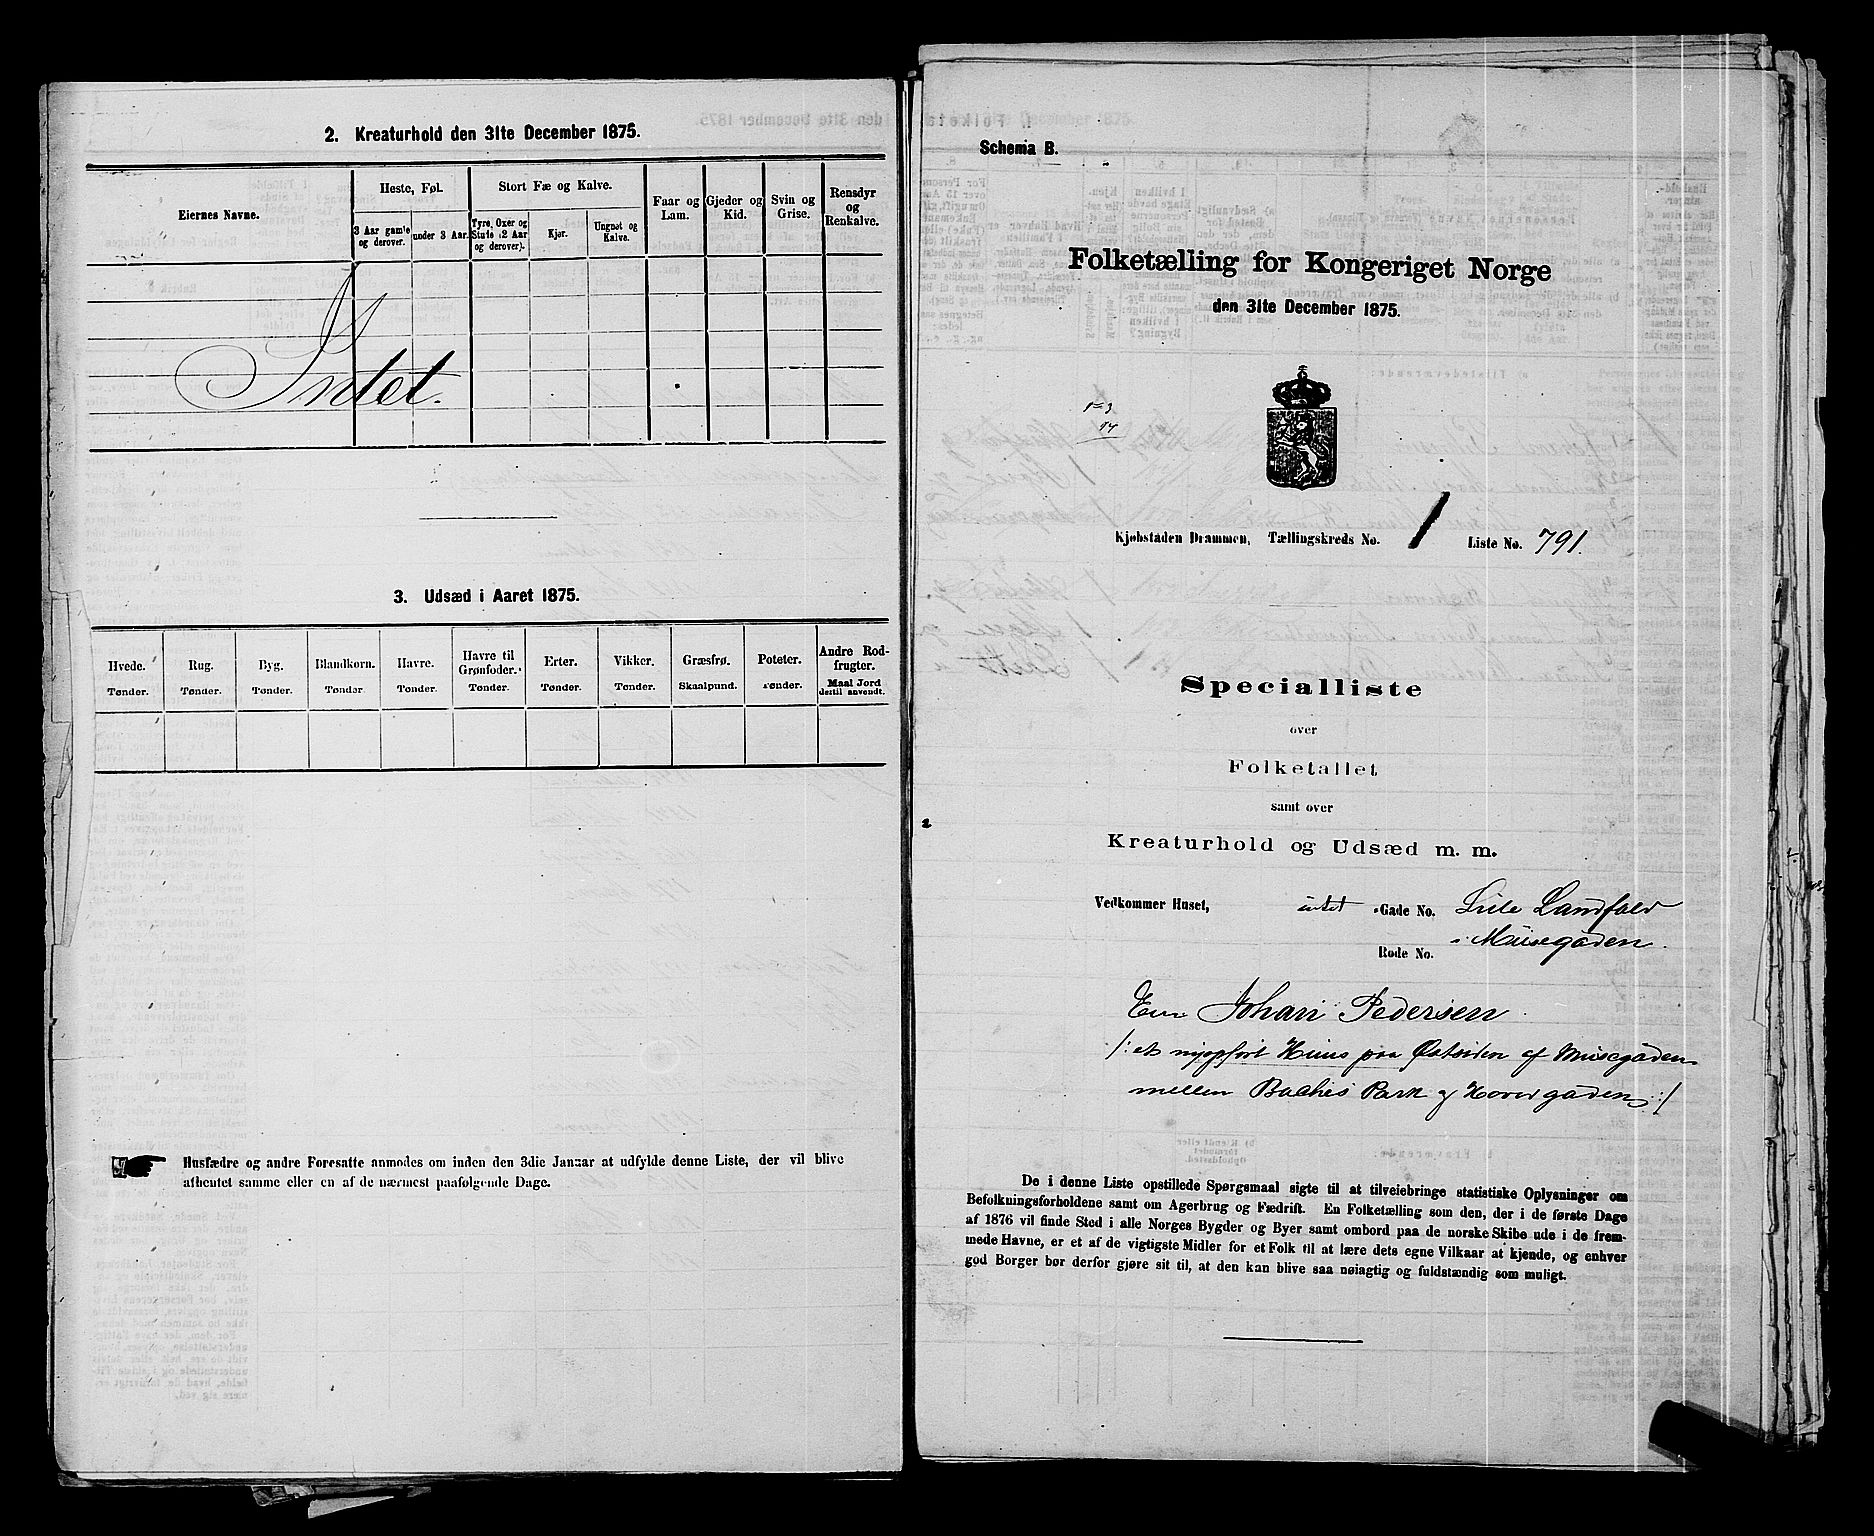 2. Kreaturhold den 31te December 1875.
Eiernes Navne.
Heste, Føl.
Stort Fæ og Kalve.
Faar og Lam.
Gjeder og Kid.
Svin og Grise.
Rensdyr og Renkalve.
3 Aar gamle og derover.
under 3 Aar.
Tyre, Oxer og Stute (2 Aar og derover).
Kjør.
Ungnøt og Kalve.
Intet.
3. Udsæd i Aaret 1875.
Hvede. Rug. Byg. Blandkorn. Havre. Havre til Grønfoder. Erter. Vikker. Græsfrø. Poteter. Andre Rodfrugter.
Tønder. Tønder. Tønder. Tønder. Tønder. Tønder. Tønder. Tønder. Skaalpund. Tønder. Maal Jord dertil anvendt.
Husfædre og andre Foresatte anmodes om inden den 3die Januar at udfylde denne Liste, der vil blive
afhentet samme eller en af de nærmest paafølgende Dage.
Schema B.
Folketælling for Kongeriget Norge
den 31te December 1875.
Kjøbstaden Drammen, Tællingskreds No. 1 Liste No. 791.
Specialliste
over
Folketallet
samt over
Kreaturhold og Udsæd m. m.
Vedkommer Huset, intet Gade No. Lille Landfald
Rode No. Musegaden
Eier Johan Pedersen
/: et nyopført Huus paa Østsiden af Musegaden
mellem Baches Park og Hovedgaden :/
De i denne Liste opstillede Spørgsmaal sigte til at tilveiebringe statistiske Oplysninger om
Befolkningsforholdene samt om Agerbrug og Fædrift. En Folketælling som den, der i de første Dage
af 1876 vil finde Sted i alle Norges Bygder og Byer samt ombord paa de norske Skibe ude i de frem-
mede Havne, er et af de vigtigste Midler for et Folk til at lære dets egne Vilkaar at kjende, og enhver
god Borger bør derfor gjøre sit til, at den kan blive saa nøiagtig og fuldstændig som muligt.